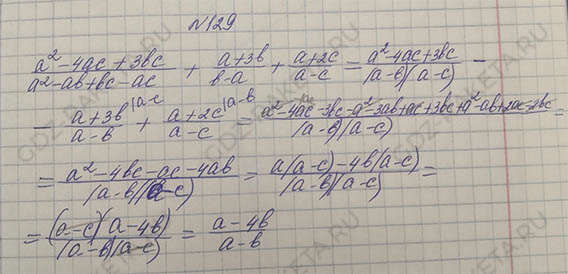 №129
(a²-4ac+3bc)/(a²-ab+bc-ac) + (a+3b)/(b-a) + (a+2c)/(a-c) = (a²-4ac+3bc)/((a-b)(a-c)) -
- (a+3b)/(a-b) |a-c + (a+2c)/(a-c) |a-b = (a²-4ac-3bc-a²-3ab+ac+3bc+a²-ab+2ac-2bc)/((a-b)(a-c)) =
= (a²-4bc-ac-4ab)/((a-b)(a-c)) = (a(a-c)-4b(a-c))/((a-b)(a-c)) =
= ((a-c)(a-4b))/((a-b)(a-c)) = (a-4b)/(a-b)
GDZ-RAKETA.RU